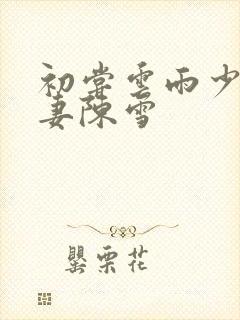 初尝云雨少
妻陈雪
罂粟花